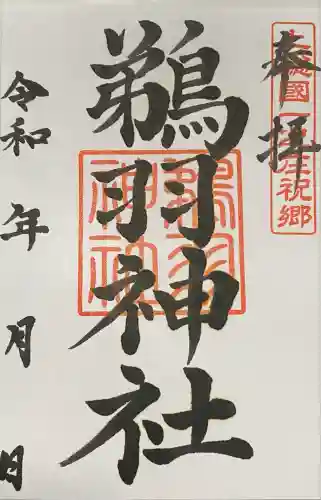 奉拝
國一
祝郷
鵜羽神社
鵜羽
神社
令和 年 月 日